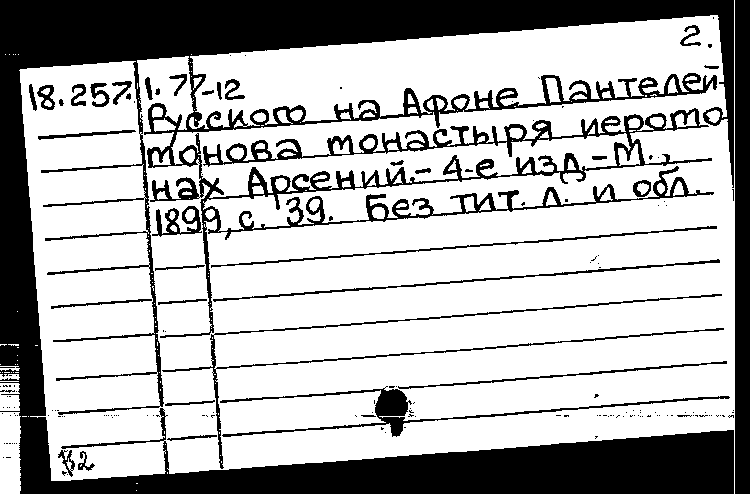 2.
18.257.1.77-12
Русского на Афоне Пантелей-
монова монастыря иеромо
нах Арсений.- 4-е изд.- М.,
1899, с. 39. Без тит. л. и обл.